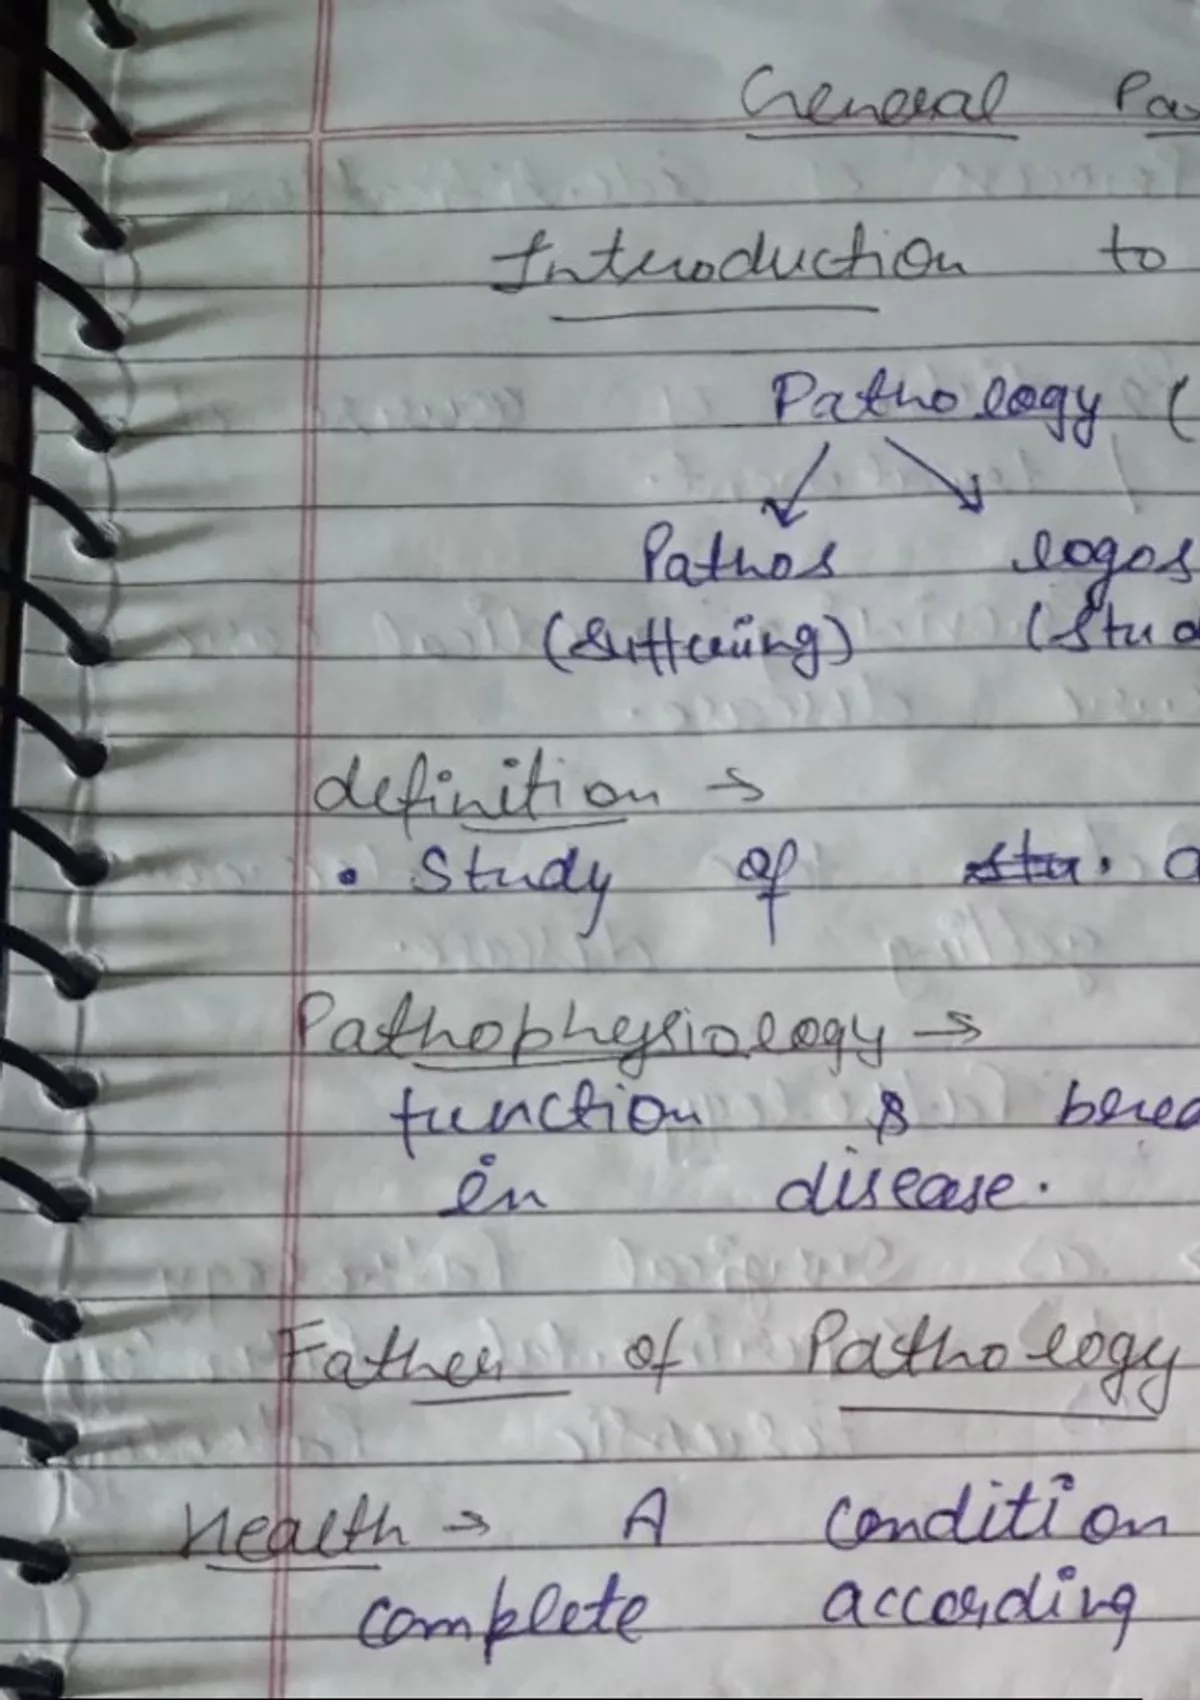 General Pa
Introduction to
Pathology (
Pathos logos
(Suffering) (Stud
definition →
• Study of stu.
Pathophysiology →
function &
in disease.
Father of Pathology
Health → A condition
complete according